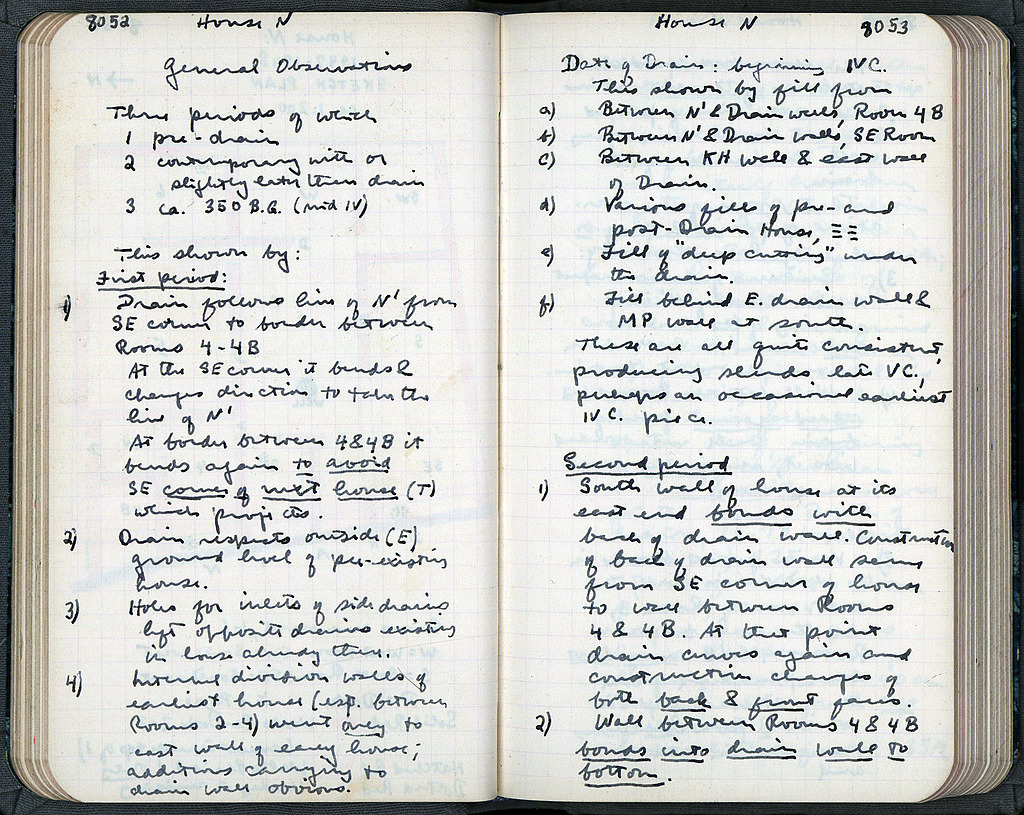 8052 House N
General Observations
Three periods of which
1 pre-drain
2 contemporary with or
slightly later than drain
3 ca. 350 B.C. (mid IV)
This shown by:
First period:
1) Drain follows line of N' from
SE corner to border between
Rooms 4-4B
At the SE corner it bends &
changes direction to take the
line of N'
At border between 4&4B it
bends again to avoid
SE corner of next house (T)
which projects.
2) Drain respects outside (E)
ground level of pre-existing
house.
3) Holes for inlets of side drains
left opposite drains existing
in house already then.
4) Internal division walls of
earliest house (esp. between
Rooms 2-4) went only to
east wall of early house;
additions carrying to
drain wall obvious.
House N 8053
Date of Drain: beginning IV C.
This shown by fill from
a) Between N' & Drain walls, Room 4B
b) Between N' & Drain walls, SE Room
c) Between KH wall & east wall
of Drain.
d) Various fills of pre- and
post-Drain House,
e) Fill of "deep cutting" under
the drain.
f) Fill behind E. drain wall &
MP wall at south.
These are all quite consistent,
producing sherds late V C.,
perhaps an occasional earliest
IV C. piece.
Second period
1) South wall of house at its
east end bonds with
back of drain wall. Construction
of back of drain wall same
from SE corner of house
to wall between Rooms
4 & 4B. At that point
drain curves again and
construction changes of
both back & front faces.
2) Wall between Rooms 4 & 4B
bonds into drain wall to
bottom.